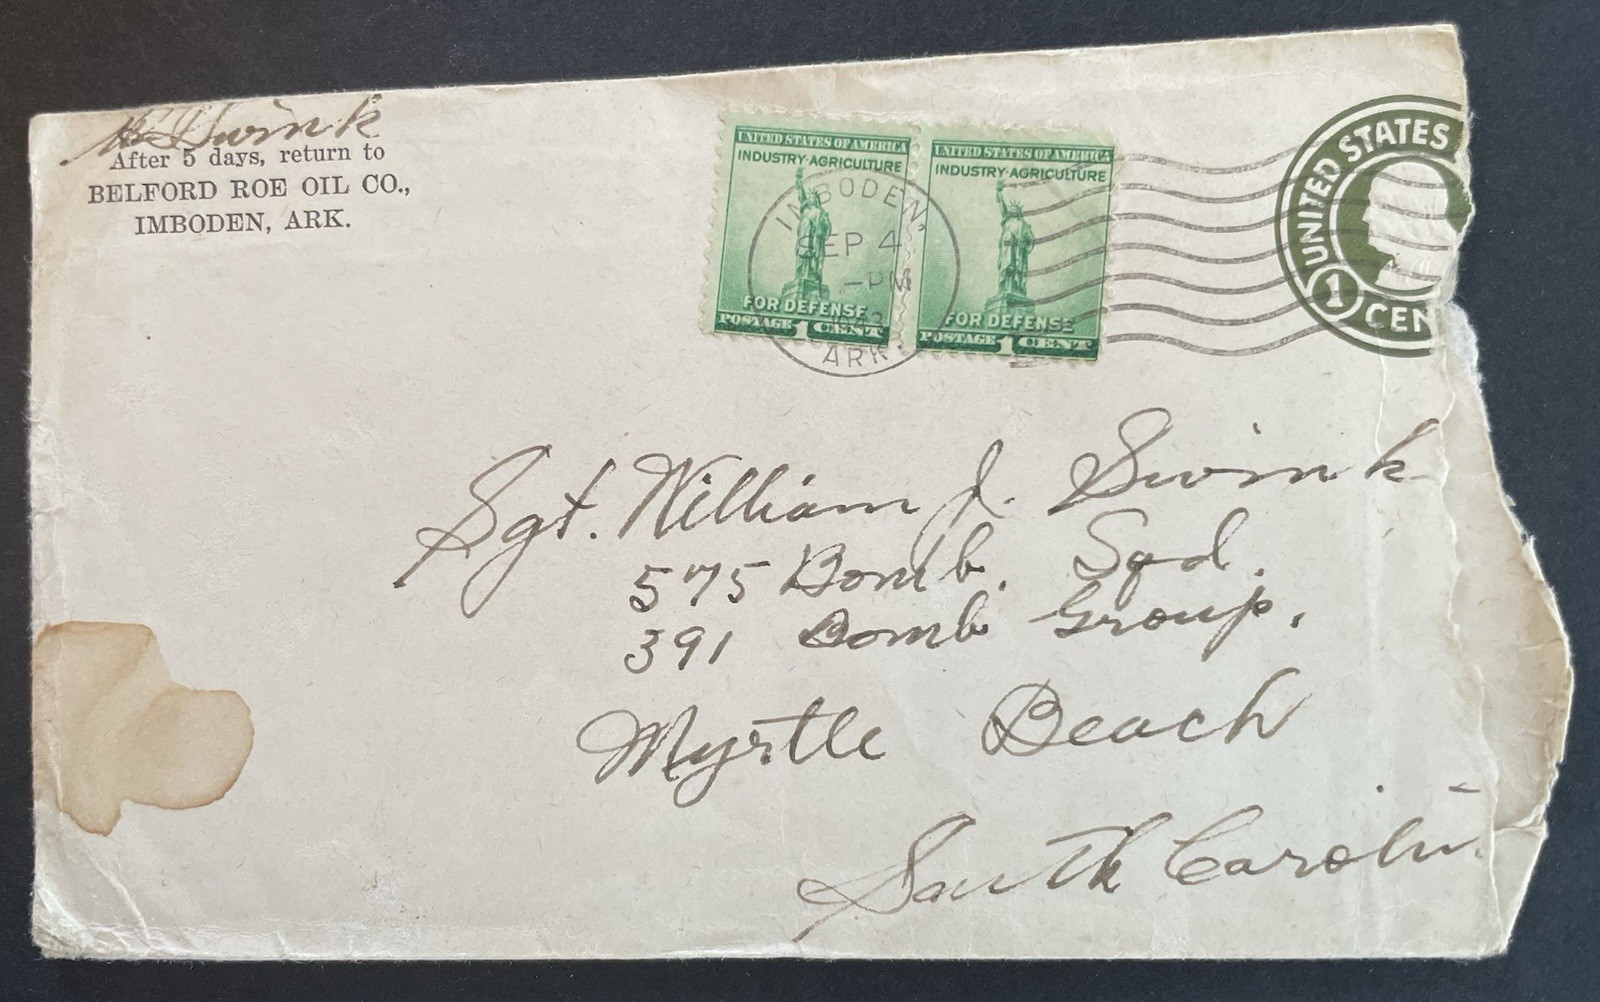 Swink
After 5 days, return to
BELFORD ROE OIL CO.,
IMBODEN, ARK.
UNITED STATES OF AMERICA
INDUSTRY·AGRICULTURE
FOR DEFENSE
POSTAGE 1 CENT
UNITED STATES OF AMERICA
INDUSTRY·AGRICULTURE
FOR DEFENSE
POSTAGE 1 CENT
IMBODEN,
SEP 4
-PM
ARK.
UNITED STATES
1 CEN
Sgt. William J. Swink
575 Bomb. Sqd.
391 Bomb Group.
Myrtle Beach
South Carolin